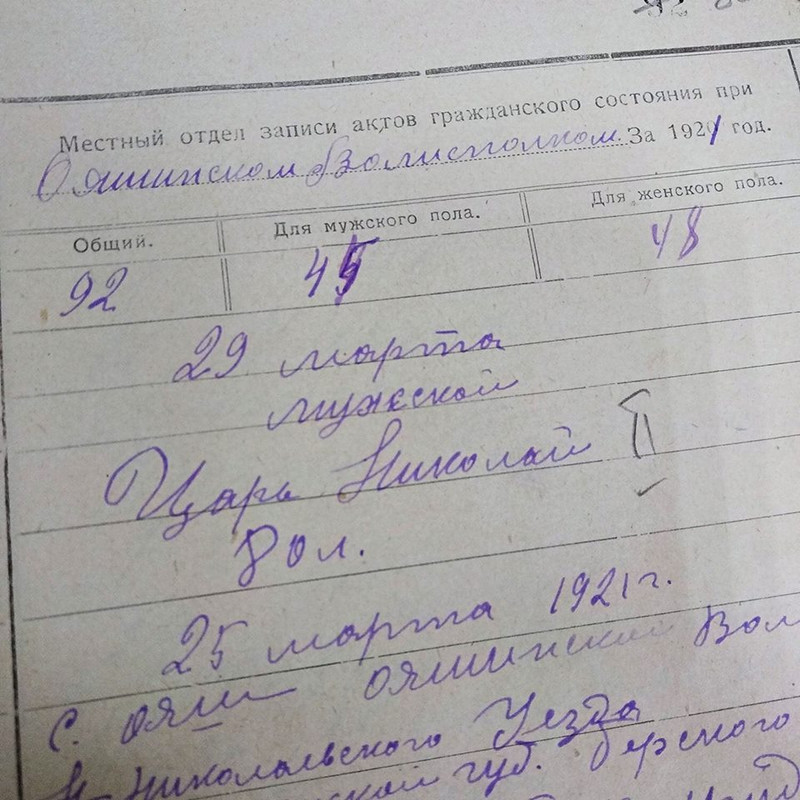 Местный отдел записи актов гражданского состояния при
Ояшинском Волисполком. За 1921 год.
Общий. Для мужского пола. Для женского пола.
92 45 48
29 марта
мужской
Царь Николай II
80 л.
25 марта 1921 г.
с. Ояш Ояшинской Вол
Н-Николаевского Уезда
ской губ.